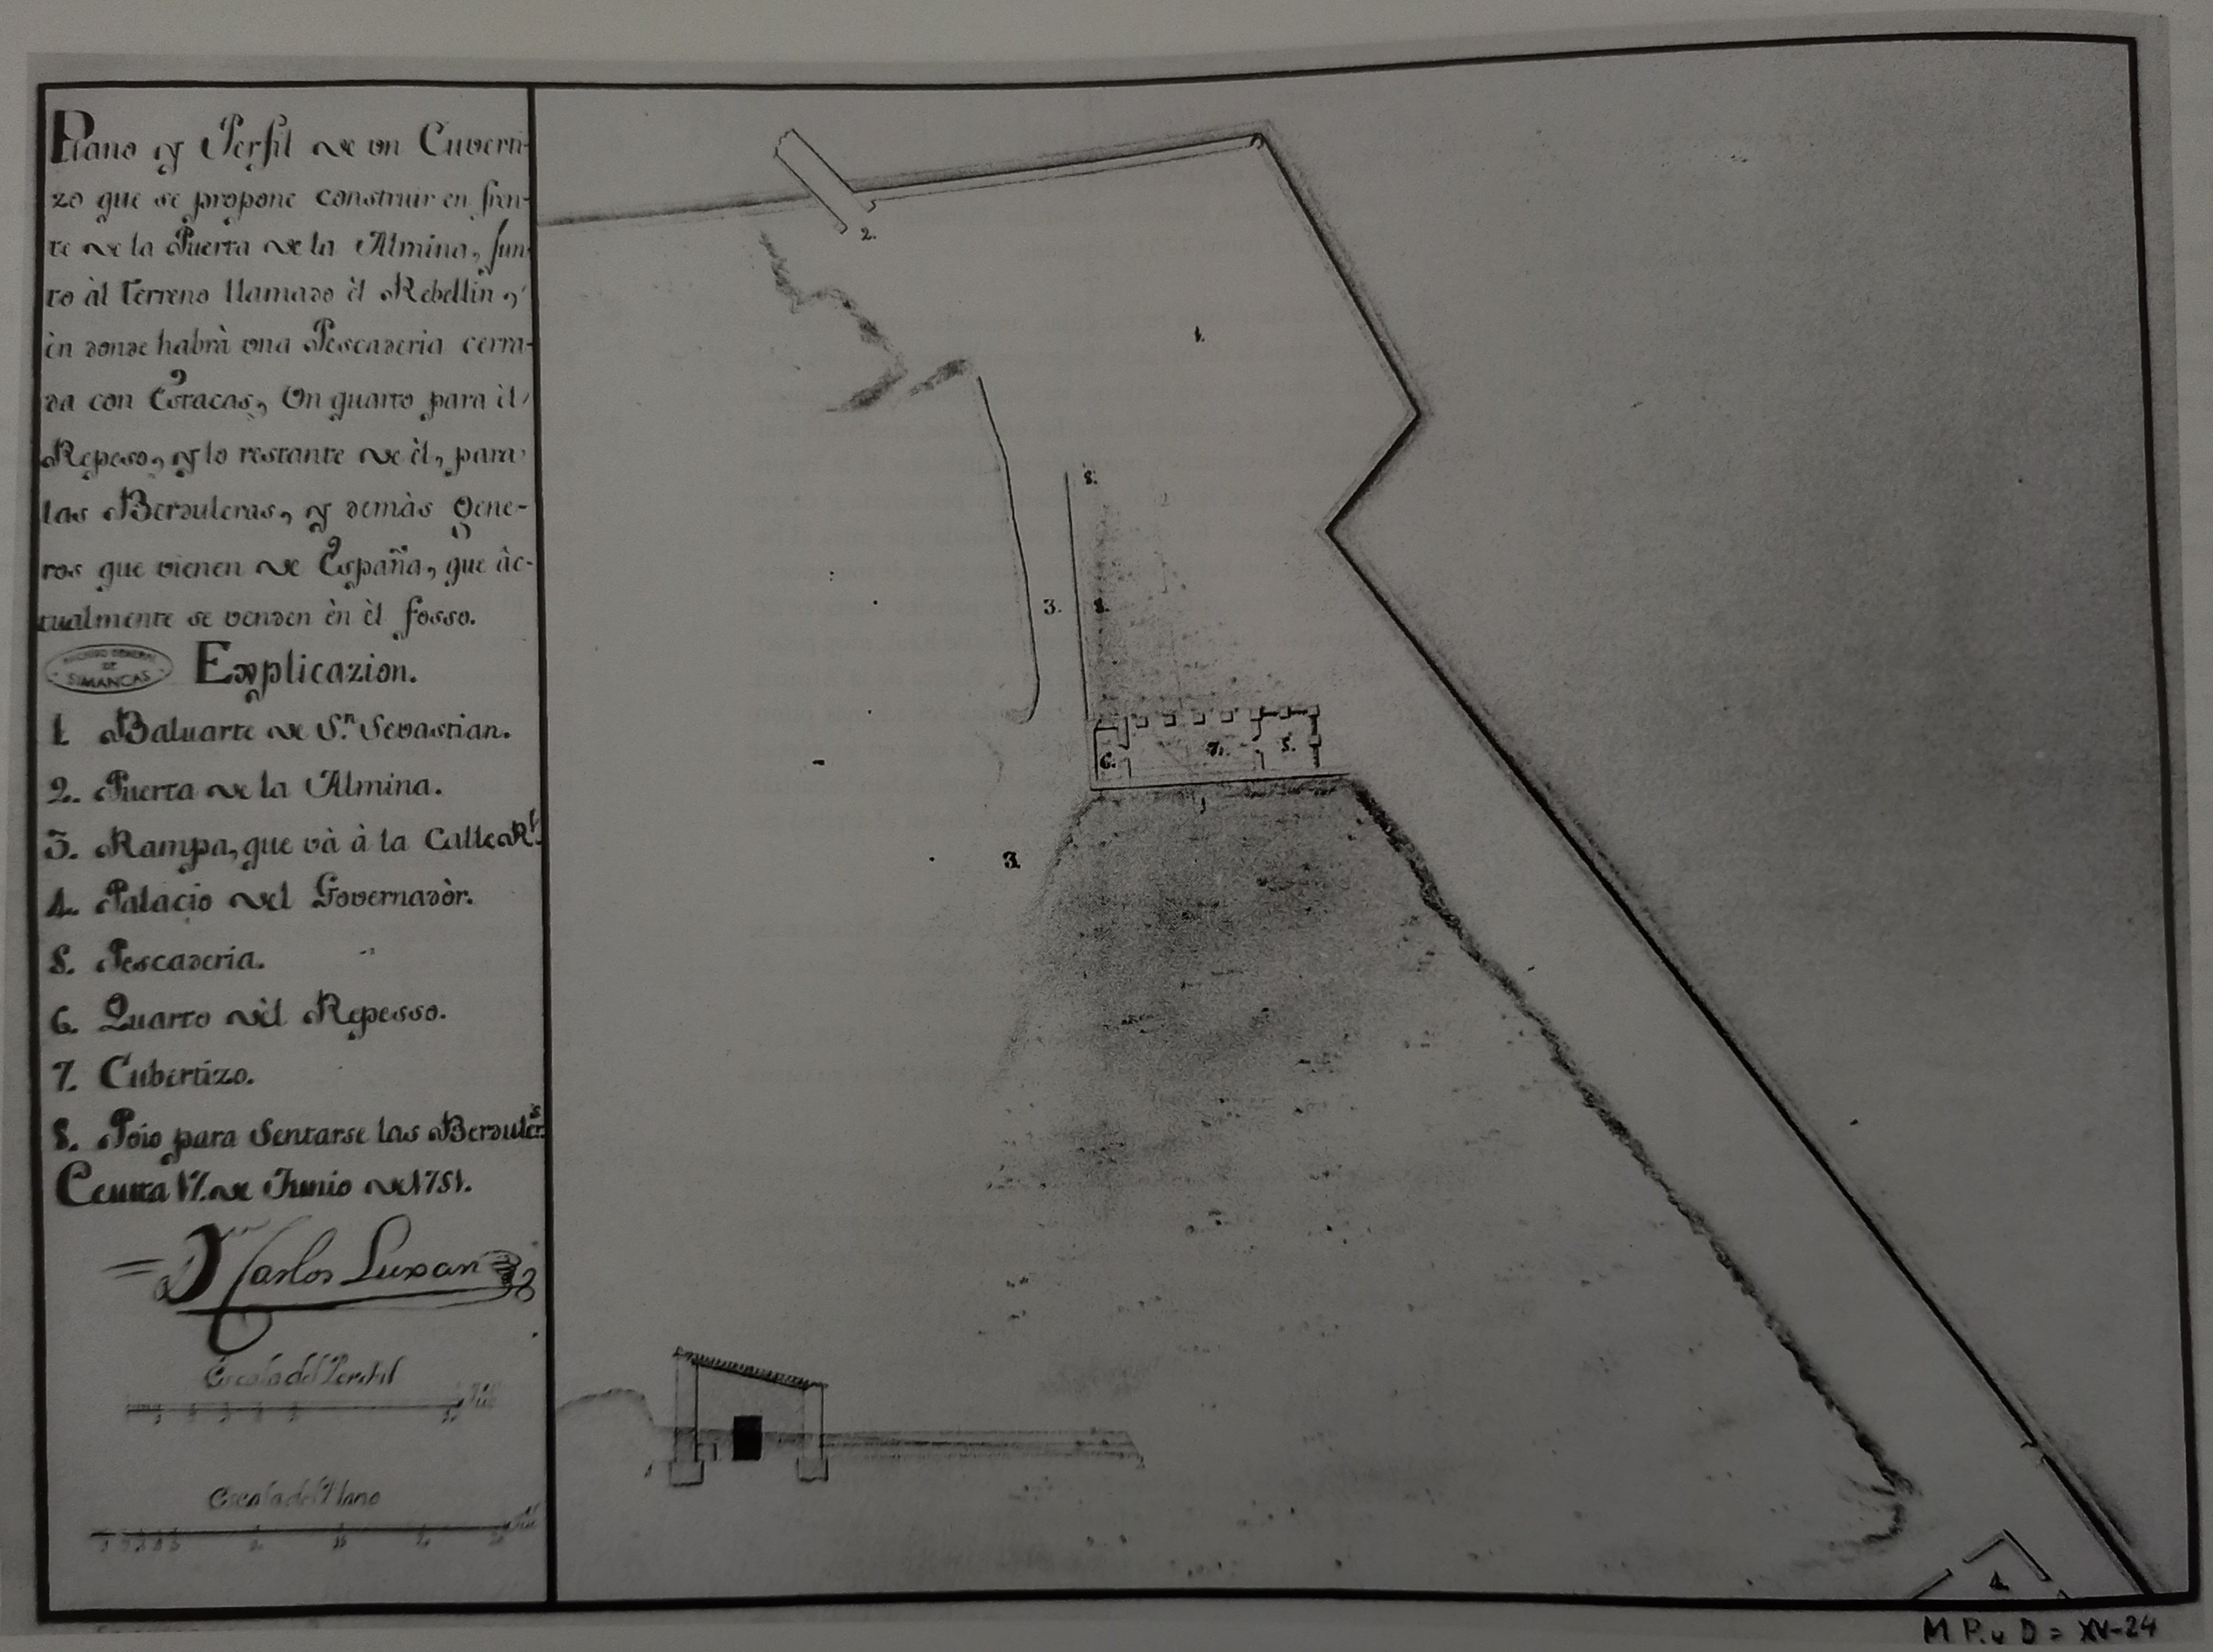 Plano y Perfil de un Cuverti-
zo que se propone construir en fren-
te de la Puerta de la Almina, jun-
to àl terreno llamado èl Rebellin,
èn donde habrà una Pescaderia cerra-
da con Estacas, Un quarto para èl
Repeso, y lo restante de èl, para
las Berduleras, y demàs gene-
ros que vienen de España, que àc-
tualmente se venden èn èl fosso.
ARCHIVO GENERAL
DE
SIMANCAS
Explicazion.
1. Baluarte de Sn. Sevastian.
2. Puerta de la Almina.
3. Rampa, que và à la Calle Rl.
4. Palacio del Governadòr.
5. Pescaderia.
6. Quarto dèl Repesso.
7. Cubertizo.
8. Poio para Sentarse las Berdulers.
Ceuta 17. de Junio de 1751.
Dn Carlos Luxan
Escala del Perfil
Escala del Plano
2.
1.
8.
3.
8.
6.
7.
5.
3.
4.
M P. y D = XV-24